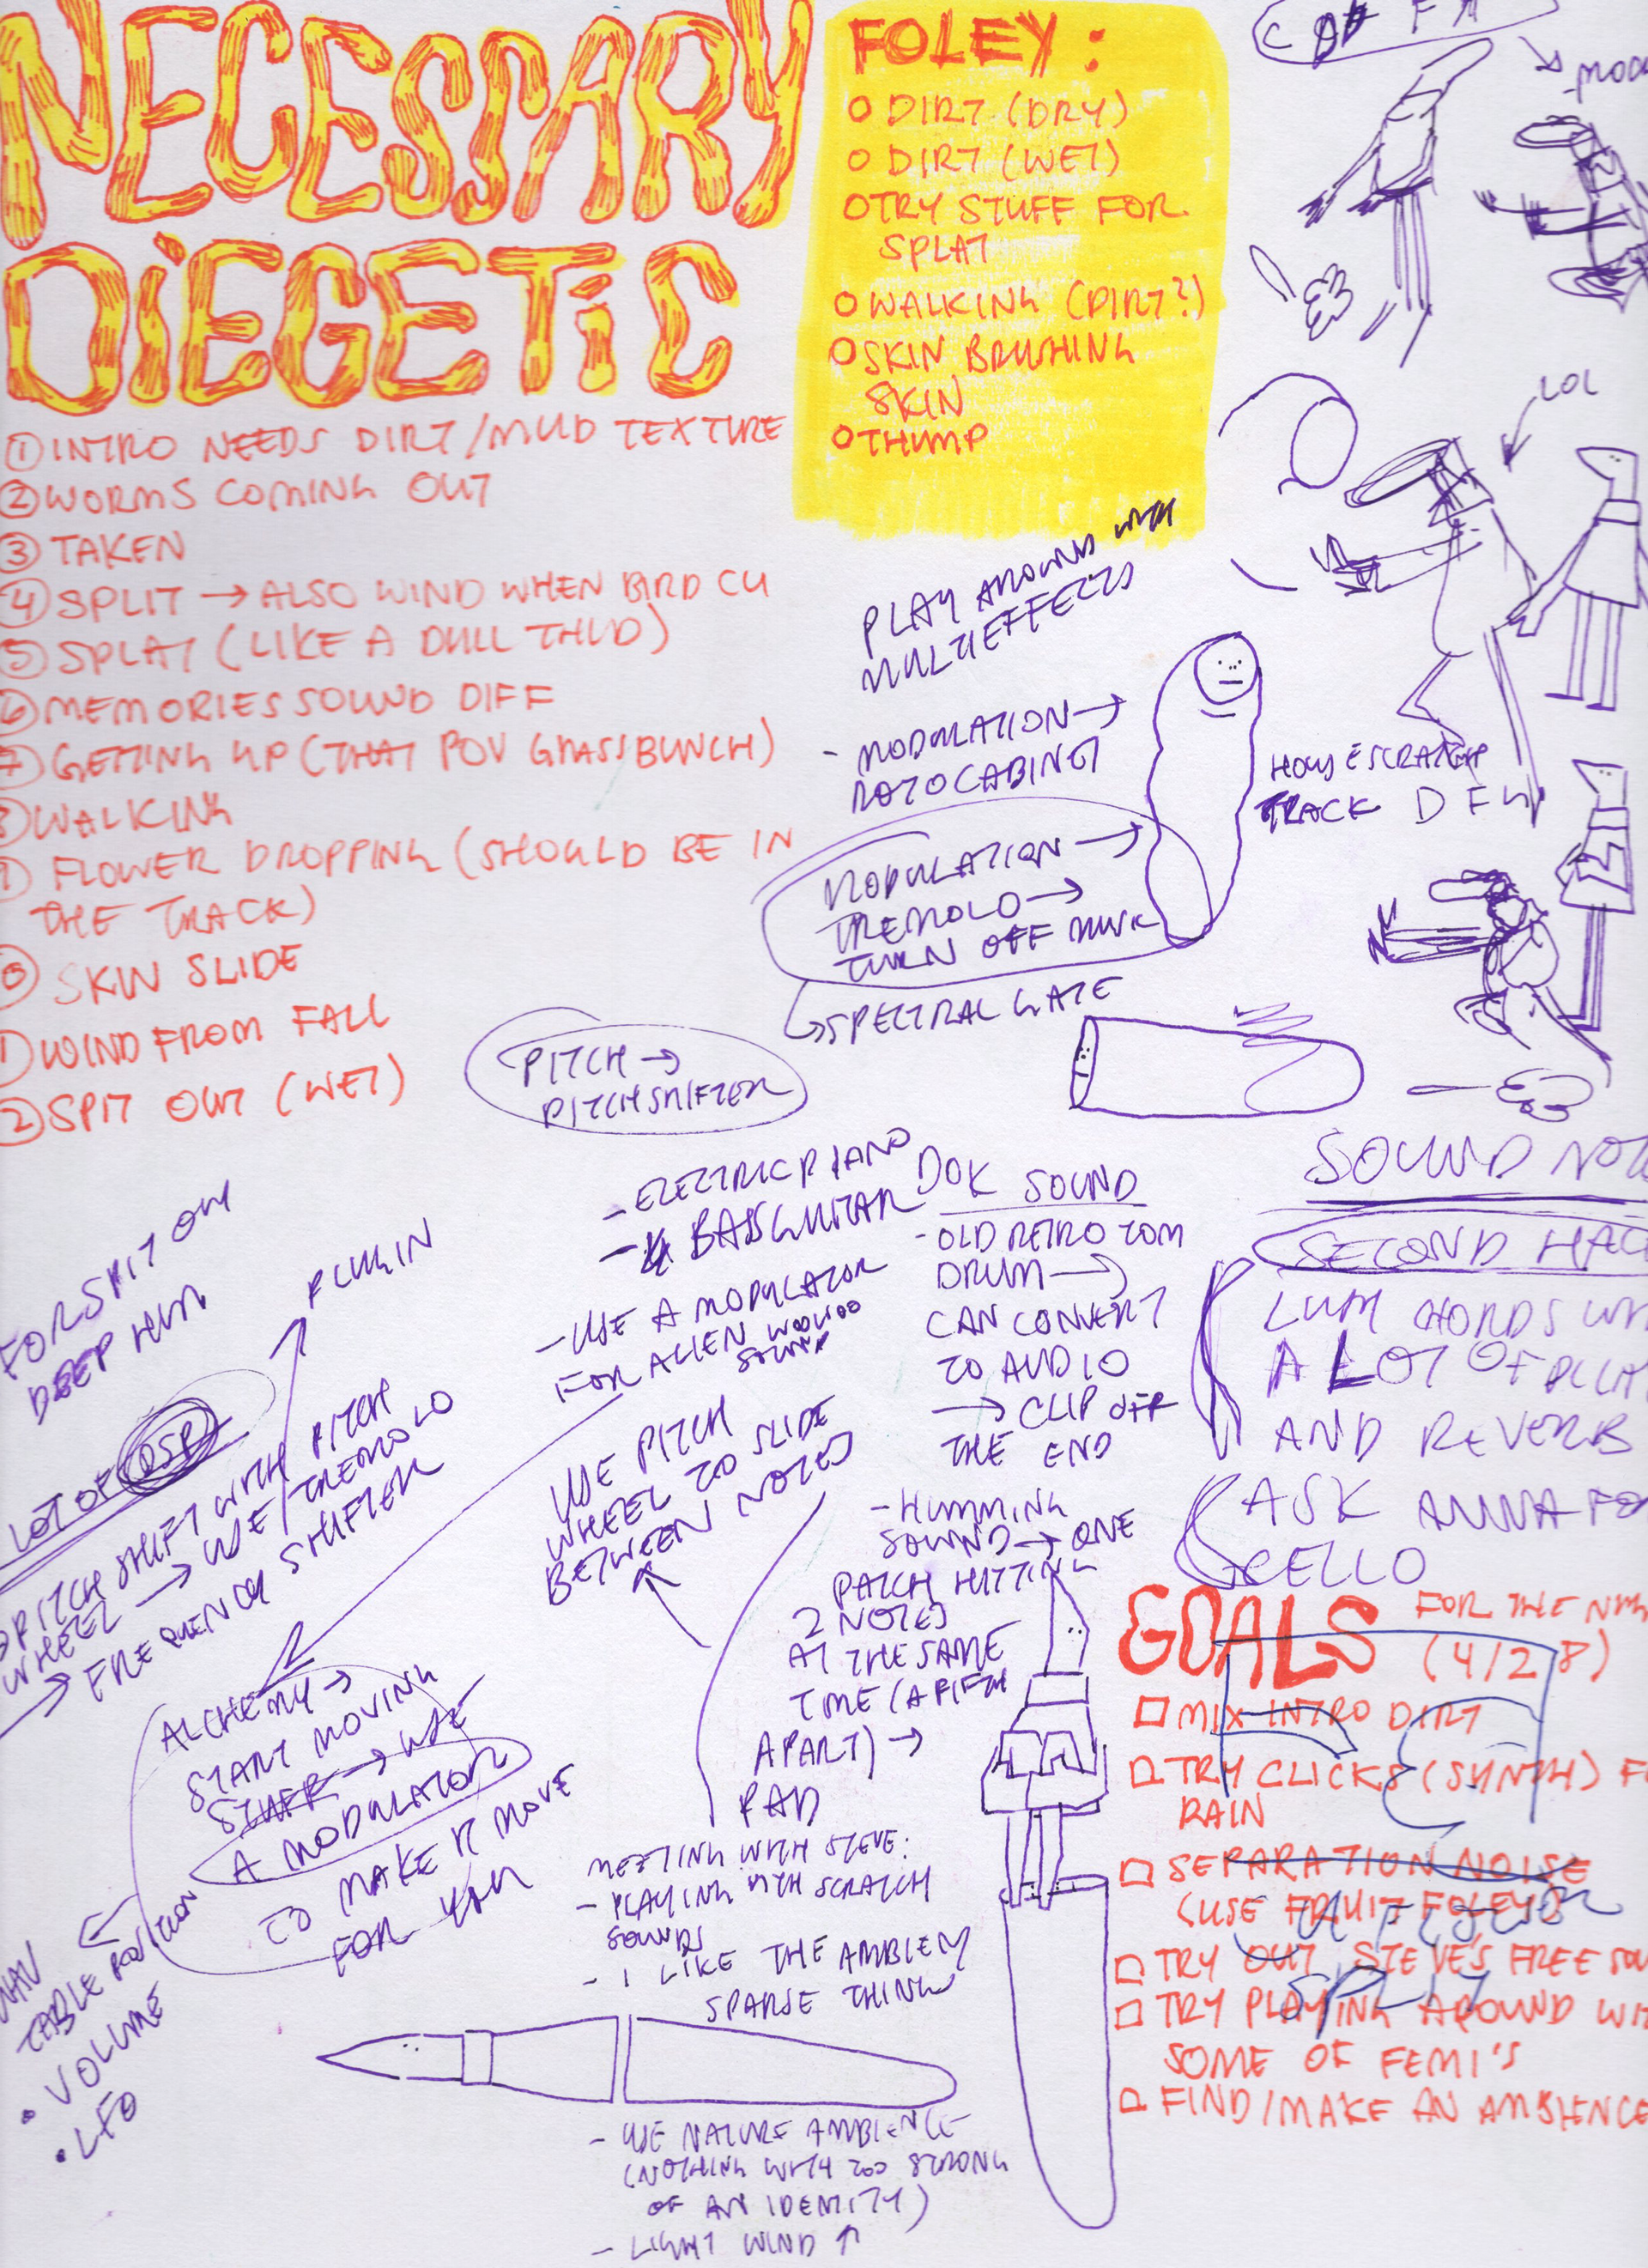 NECESSARY
DIEGETIC
① INTRO NEEDS DIRT/MUD TEXTURE
② WORMS COMING OUT
③ TAKEN
④ SPLIT → ALSO WIND WHEN BIRD CU
⑤ SPLAT (LIKE A DULL THUD)
⑥ MEMORIES SOUND DIFF
⑦ GETTING UP (THAT POV GRASS BUNCH)
⑧ WALKING
⑨ FLOWER DROPPING (SHOULD BE IN
THE TRACK)
⑩ SKIN SLIDE
⑪ WIND FROM FALL
⑫ SPIT OUT (WET)
FOLEY:
O DIRT (DRY)
O DIRT (WET)
O TRY STUFF FOR
SPLAT
O WALKING (DIRT?)
O SKIN BRUSHING
SKIN
O THUMP
LOL
PLAY AROUND WITH
MULTIEFFECTS
- MODULATION →
ROTOCABINET
MODULATION →
TREMOLO →
TURN OFF
↳ SPECTRAL GATE
TRACK D
PITCH →
PITCH SHIFTER
- ELECTRIC PIANO
- BASS GUITAR
- USE A MODULATOR
FOR ALIEN WOOOOO
SOUND
USE PITCH
WHEEL TO SLIDE
BETWEEN NOTES
FOR SPIT OUT
DEEP HUM
PLUGIN
LOT OF DSP
PITCH SHIFT WITH PITCH
WHEEL → USE TREMOLO
→ FREQUENCY SHIFTER
ALCHEMY →
START MOVING
STUFF → USE
A MODULATOR
TO MAKE IT MOVE
FOR YOU
TABLE POSITION
• VOLUME
• LFO
DOK SOUND
- OLD RETRO TOM
DRUM →
CAN CONVERT
TO AUDIO
→ CLIP OFF
THE END
- HUMMING
SOUND → ONE
PATCH HITTING
2 NOTES
AT THE SAME
TIME (A FIFTH
APART) →
PAD
MEETING WITH STEVE:
- PLAYING WITH SCRATCH
SOUNDS
- I LIKE THE AMBIENT
SPARSE THING
- USE NATURE AMBIENCE
(NOTHING WITH TOO STRONG
OF AN IDENTITY)
- LIGHT WIND ↑
SOUND
SECOND
CHORDS
A LOT OF
AND REVERB
ASK ANNA FO
CELLO
GOALS FOR THE
(4/28)
□ MIX INTRO DIRT
□ TRY CLICKS (SYNTH) F
RAIN
□ SEPARATION NOISE
(USE FRUIT FOLEY)
□ TRY OUT STEVE'S FREE SOU
□ TRY PLAYING AROUND WI
SOME OF FEMI'S
□ FIND/MAKE AN AMBIENCE
SPLIT